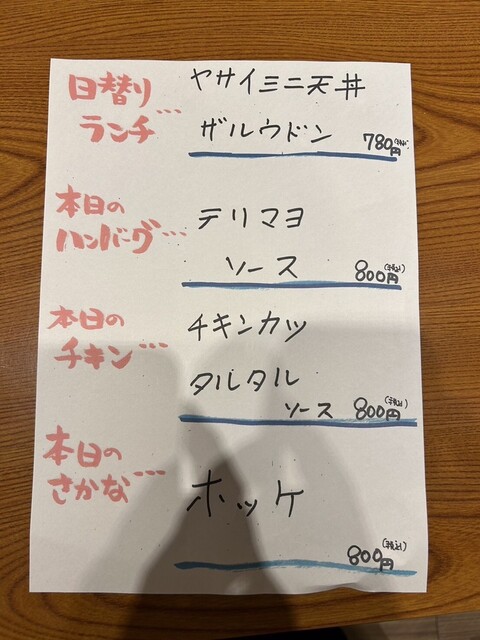 日替り ヤサイミニ天丼
ランチ… ザルウドン 780円(税込)
本日の テリマヨ
ハンバーグ… ソース 800円(税込)
本日の チキンカツ
チキン… タルタル
ソース 800円(税込)
本日の
さかな… ホッケ
800円(税込)